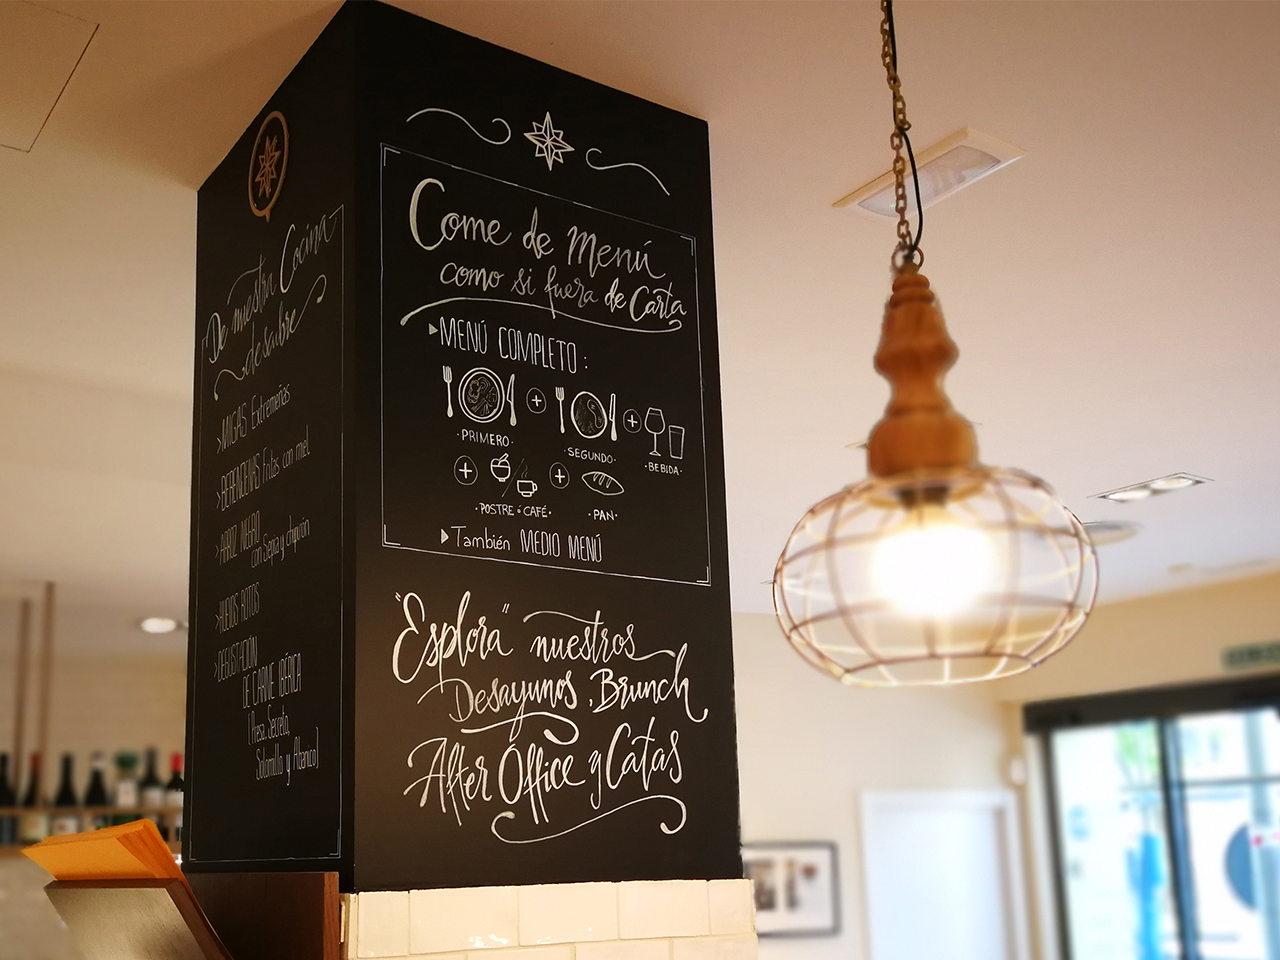 De nuestra Cocina
descubre
>MIGAS Extremeñas
>BERENGENAS Fritas con miel
>ARROZ NEGRO
con Sepia y chipirón
>HUEVOS ROTOS
>DEGUSTACIÓN
DE CARNE IBÉRICA
(Presa, Secreto,
Solomillo y Abanico)
Come de Menú
como si fuera de Carta
MENÚ COMPLETO:
+ +
·PRIMERO· ·SEGUNDO· ·BEBIDA·
+ / +
·POSTRE ó CAFÉ· ·PAN·
También MEDIO MENÚ
"Esplora" nuestros
Desayunos, Brunch
After Office y Catas